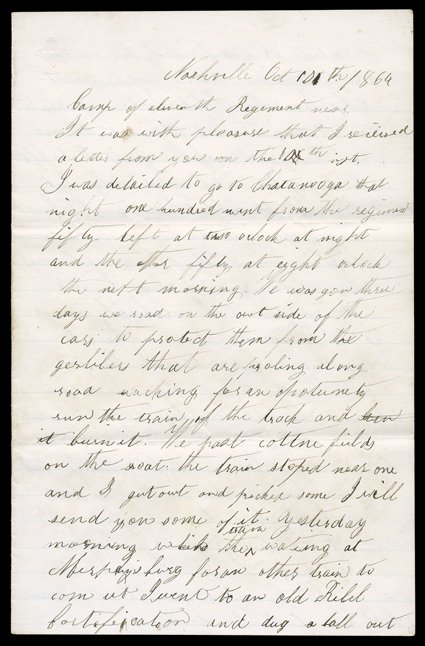 Nashville Oct 10th /864
Camp of eleventh Regiment near
It was with pleasure that I received
a letter from you on the 10th inst.
I was detailed to go to Chatanooga that
night one hundred went from the regiment
fifty left at two oclock at night
and the other fifty at eight oclock
the next morning. We was gon three
days we road on the out side of the
cars to protect them from the
gerlilers that are proling along
road waching for an opotunety
run the train of the track and
it burn it. We past cottne fields
on the roat. the train stoped near one
and I got out and picked some I will
send you some of it. Yesterday
morning while the train wateing at
Murpheysburg for an other train to
com up I went to an old Ribel
fortification and dug a ball out